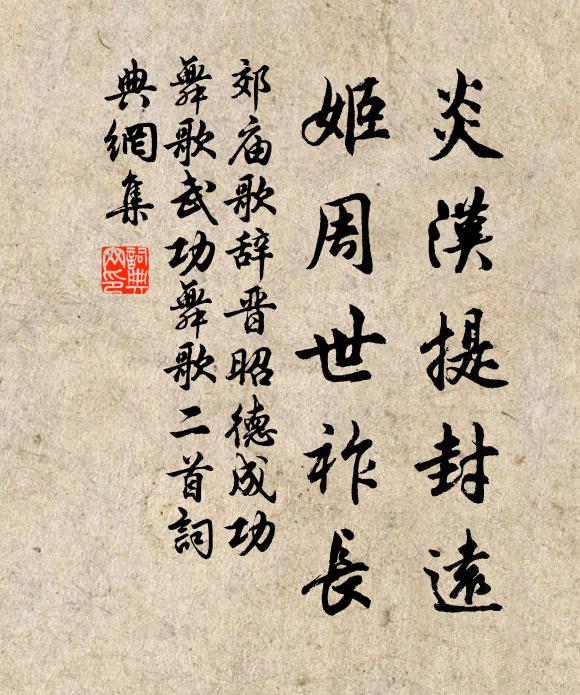 炎漢提封遠
姬周世祚長
郊庙歌辞晋昭德成功
舞歌武功舞歌二首詞
典網集
詞典網印